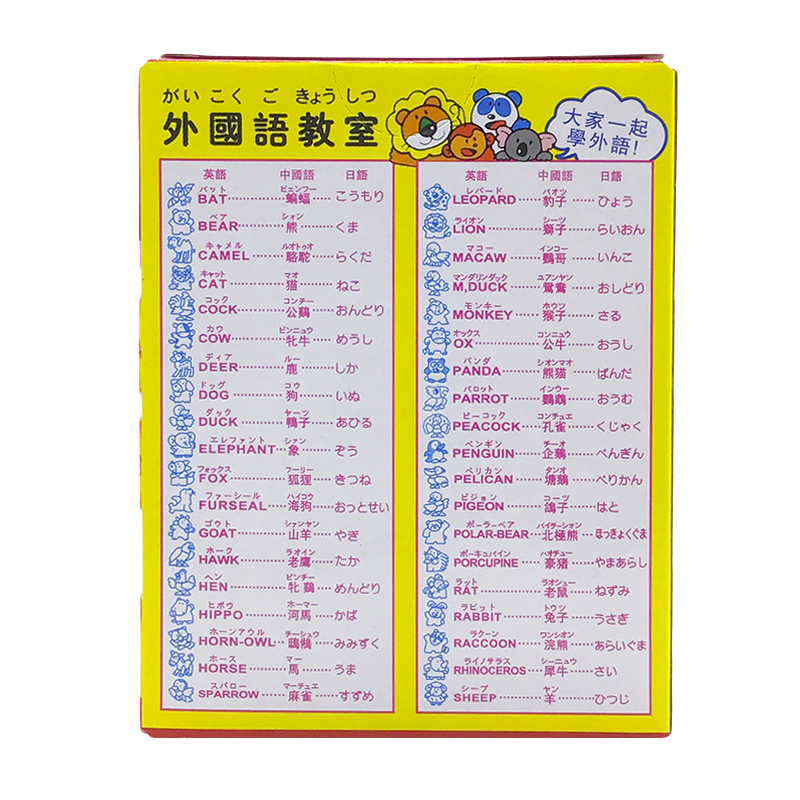 がい こく ご きょう しつ
外國語教室
大家一起
學外語!
英語 中國語 日語
バット ビェンフー
BAT 蝙蝠 こうもり
ベア ション
BEAR 熊 くま
キャメル ルオトゥオ
CAMEL 駱駝 らくだ
キャット マオ
CAT 猫 ねこ
コック コンチー
COCK 公鷄 おんどり
カウ ビンニュウ
COW 牝牛 めうし
ディア ルー
DEER 鹿 しか
ドッグ コウ
DOG 狗 いぬ
ダック ヤーツ
DUCK 鴨子 あひる
エレファント シャン
ELEPHANT 象 ぞう
フォックス フーリー
FOX 狐狸 きつね
ファーシール ハイコウ
FURSEAL 海狗 おっとせい
ゴウト シャンヤン
GOAT 山羊 やぎ
ホーク ラオイン
HAWK 老鷹 たか
ヘン ピンチー
HEN 牝鷄 めんどり
ヒポウ ホーマー
HIPPO 河馬 かば
ホーンアウル チーシュウ
HORN-OWL 鴟鵂 みみずく
ホース マー
HORSE 馬 うま
スパロー マーチュエ
SPARROW 麻雀 すずめ
英語 中國語 日語
レパード パオツ
LEOPARD 豹子 ひょう
ライオン シーツ
LION 獅子 らいおん
マコー インコー
MACAW 鸚哥 いんこ
マンダリンダック ユアンヤン
M,DUCK 鴛鴦 おしどり
モンキー ホウツ
MONKEY 猴子 さる
オックス コンニュウ
OX 公牛 おうし
パンダ シオンマオ
PANDA 熊猫 ぱんだ
パロット インウー
PARROT 鸚鵡 おうむ
ピーコック コンチュエ
PEACOCK 孔雀 くじゃく
ペンギン チーオ
PENGUIN 企鵝 ぺんぎん
ペリカン タンオ
PELICAN 塘鵝 ぺりかん
ピジョン コーツ
PIGEON 鴿子 はと
ポーラーベア パイチーション
POLAR-BEAR 北極熊 ほっきょくぐま
ポーキュパイン ハオチュー
PORCUPINE 豪猪 やまあらし
ラット ラオシュー
RAT 老鼠 ねずみ
ラビット トウツ
RABBIT 兔子 うさぎ
ラクーン ワンシオン
RACCOON 浣熊 あらいぐま
ライノサラス シーニュウ
RHINOCEROS 犀牛 さい
シープ ヤン
SHEEP 羊 ひつじ